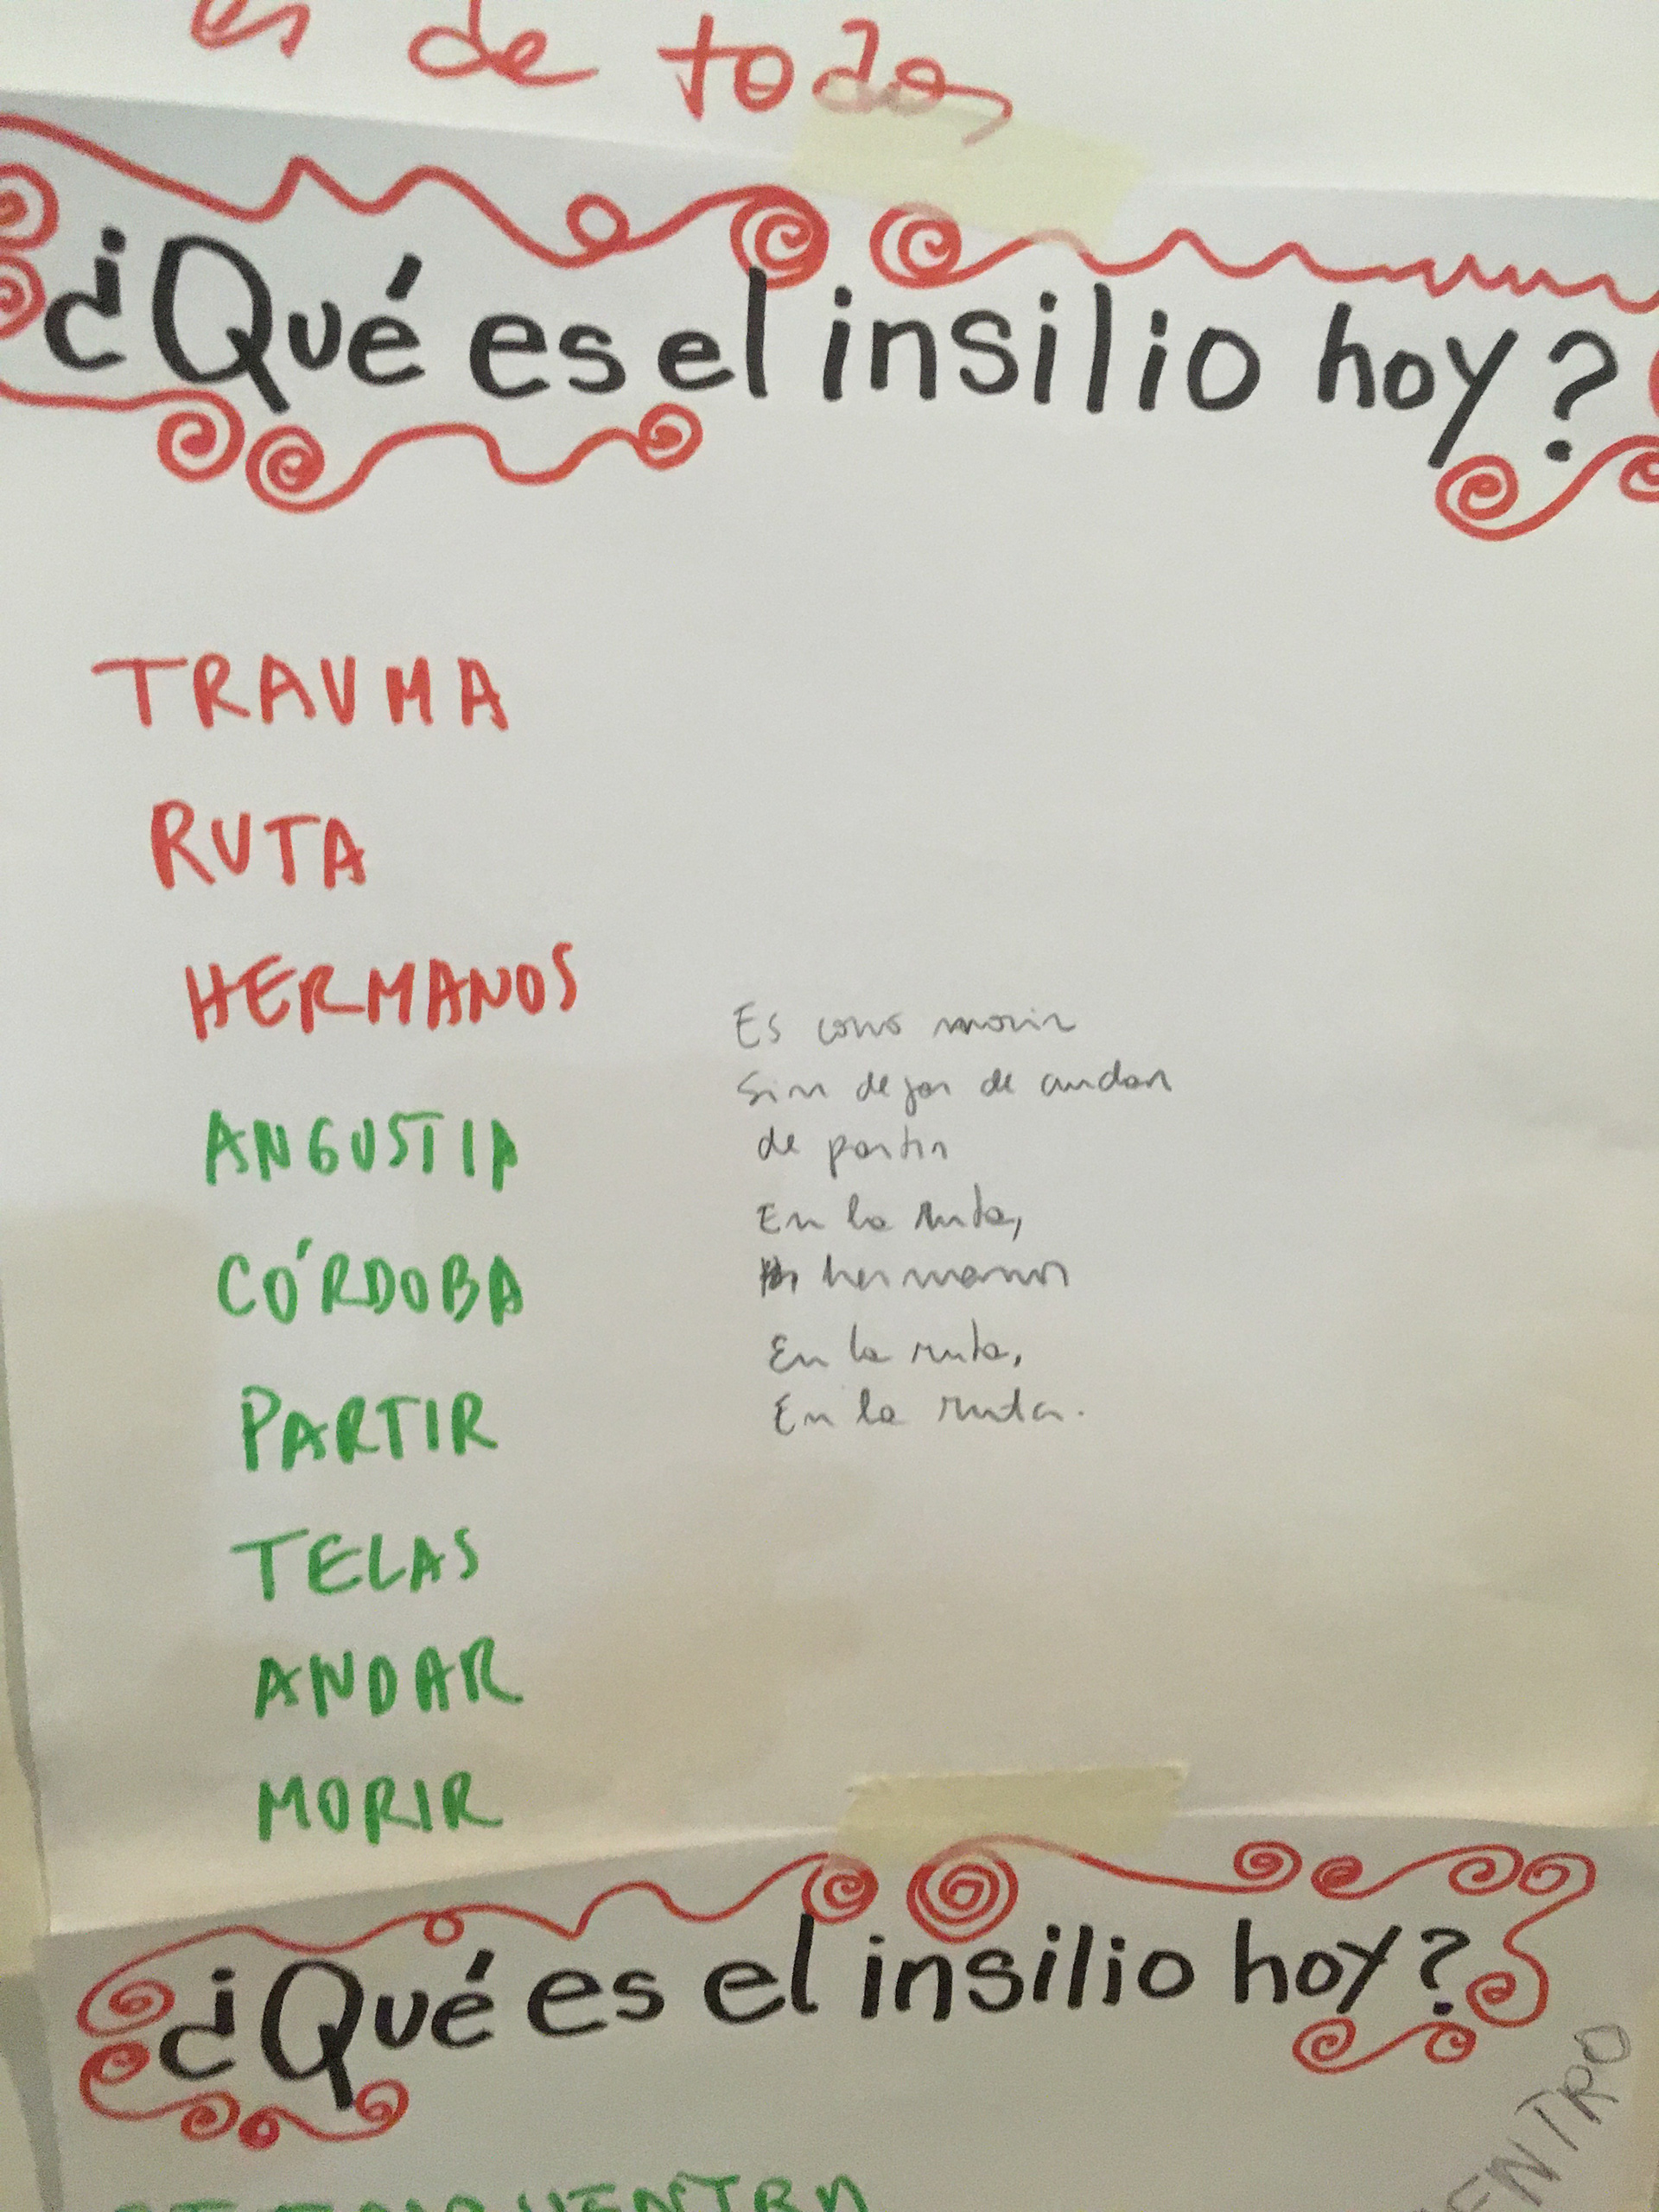 es de todos
¿Qué es el insilio hoy?
TRAUMA
RUTA
HERMANOS
ANGUSTIA
CÓRDOBA
PARTIR
TELAS
ANDAR
MORIR
Es como morir
Sin dejar de andar
de partir
En la ruta,
hermanos
En la ruta,
En la ruta.
¿Qué es el insilio hoy?